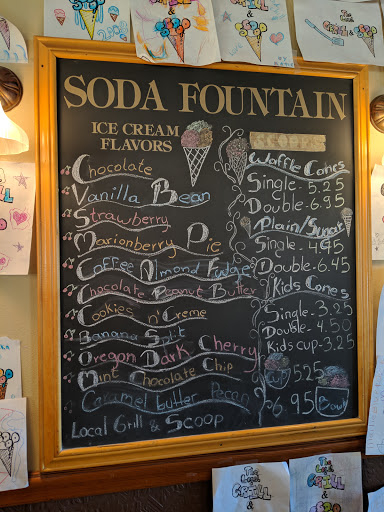 SODA FOUNTAIN
ICE CREAM
FLAVORS
Chocolate
Vanilla Bean
Strawberry
Marionberry Pie
Coffee Almond Fudge
Chocolate Peanut Butter
Cookies n' Creme
Banana Split
Oregon Dark Cherry
Mint Chocolate Chip
Caramel butter Pecan
Local Grill & Scoop
Waffle Cones
Single - 5.25
Double - 6.95
Plain/Sugar
Single - 4.45
Double - 6.45
Kids Cones
Single - 3.25
Double - 4.50
Kids cup - 3.25
5.25
6.95 Bowl
The Local
GRILL
&
The Local
GRILL
&